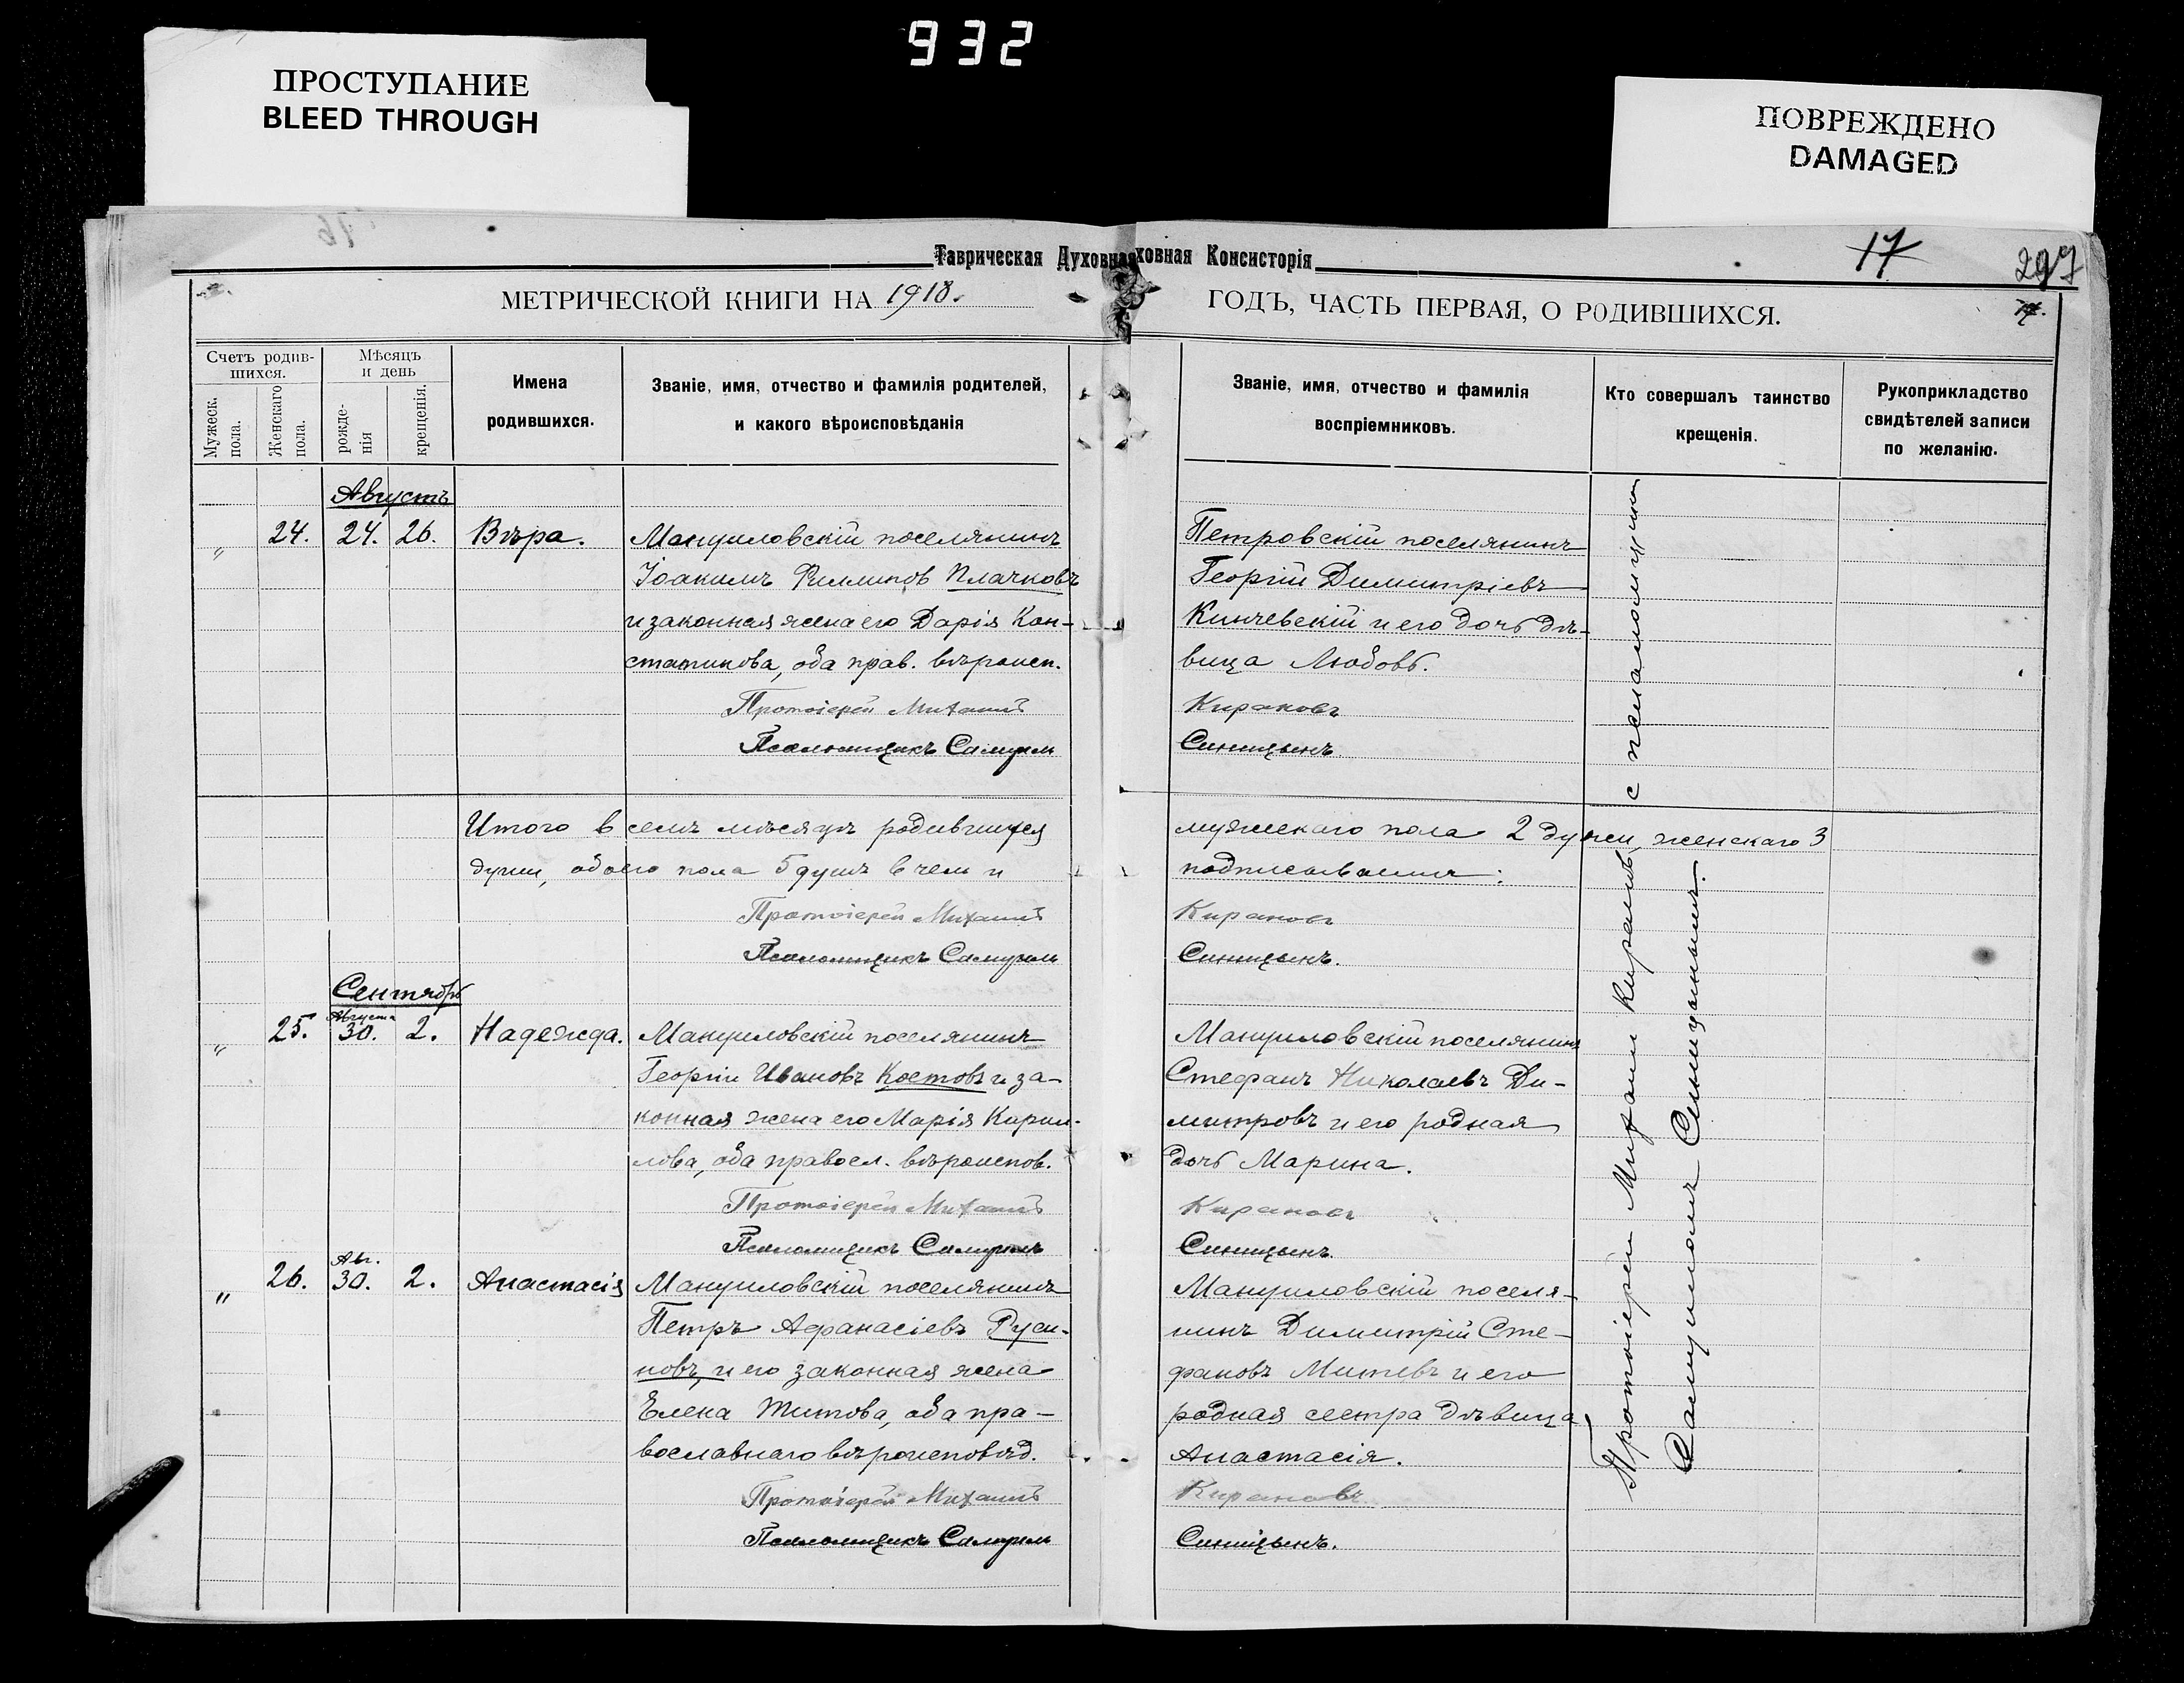 932
ПРОСТУПАНИЕ
BLEED THROUGH
ПОВРЕЖДЕНО
DAMAGED
Таврическая Духовная
ховная Консисторія
17
297
МЕТРИЧЕСКОЙ КНИГИ НА 1918.
ГОДЪ, ЧАСТЬ ПЕРВАЯ, О РОДИВШИХСЯ.
Счетъ родив-
шихся.
Мужеск.
пола.
Женскаго
пола.
Мѣсяцъ
и день
рожде-
нія
крещенія.
Имена
родившихся.
Званіе, имя, отчество и фамилія родителей,
и какого вѣроисповѣданія
Званіе, имя, отчество и фамилія
воспріемниковъ.
Кто совершалъ таинство
крещенія.
Рукоприкладство
свидѣтелей записи
по желанію.
Августъ
„ 24. 24. 26. Вѣра.
Мануиловскій поселянинъ
Іоакимъ Филлипов Плачковъ
и законная жена его Дарія Кон-
статинова, оба прав. вѣроисп.
Протоіерей Михаилъ
Псаломщикъ Самуилъ
Петровскій поселянинъ
Георгій Димитріевъ
Кинчевскій и его дочь дѣ-
вица Любовь.
Кирановъ
Синицынъ.
Итого в семъ мѣсяцѣ родившихся
мужскаго пола 2 души, женскаго 3
души, обоего пола 5 душъ в чем и
подписываемся:
Протоіерей Михаилъ
Кирановъ
Псаломщикъ Самуилъ
Синицынъ.
Сентябрь
Августа
„ 25. 30. 2. Надежда.
Мануиловскій поселянинъ
Георгій Ивановъ Костовъ и за-
конная жена его Марія Кирил-
лова, оба правосл. вѣроиспов.
Протоіерей Михаилъ
Псаломщикъ Самуилъ
Мануиловскій поселянинъ
Стефанъ Николаевъ Ди-
митровъ и его родная
дочь Марина.
Кирановъ
Синицынъ.
Авг.
„ 26. 30. 2. Анастасія
Мануиловскій поселянинъ
Петръ Афанасіевъ Руси-
новъ, и его законная жена
Елена Титова, оба пра-
вославнаго вѣроисповѣд.
Протоіерей Михаилъ
Псаломщикъ Самуилъ
Мануиловскій поселя-
нинъ Димитрій Сте-
фановъ Митевъ и его
родная сестра дѣвица
Анастасія.
Кирановъ
Синицынъ.
Протоіерей Михаилъ Кирановъ с псаломщикомъ
Самуиломъ Синицынымъ.